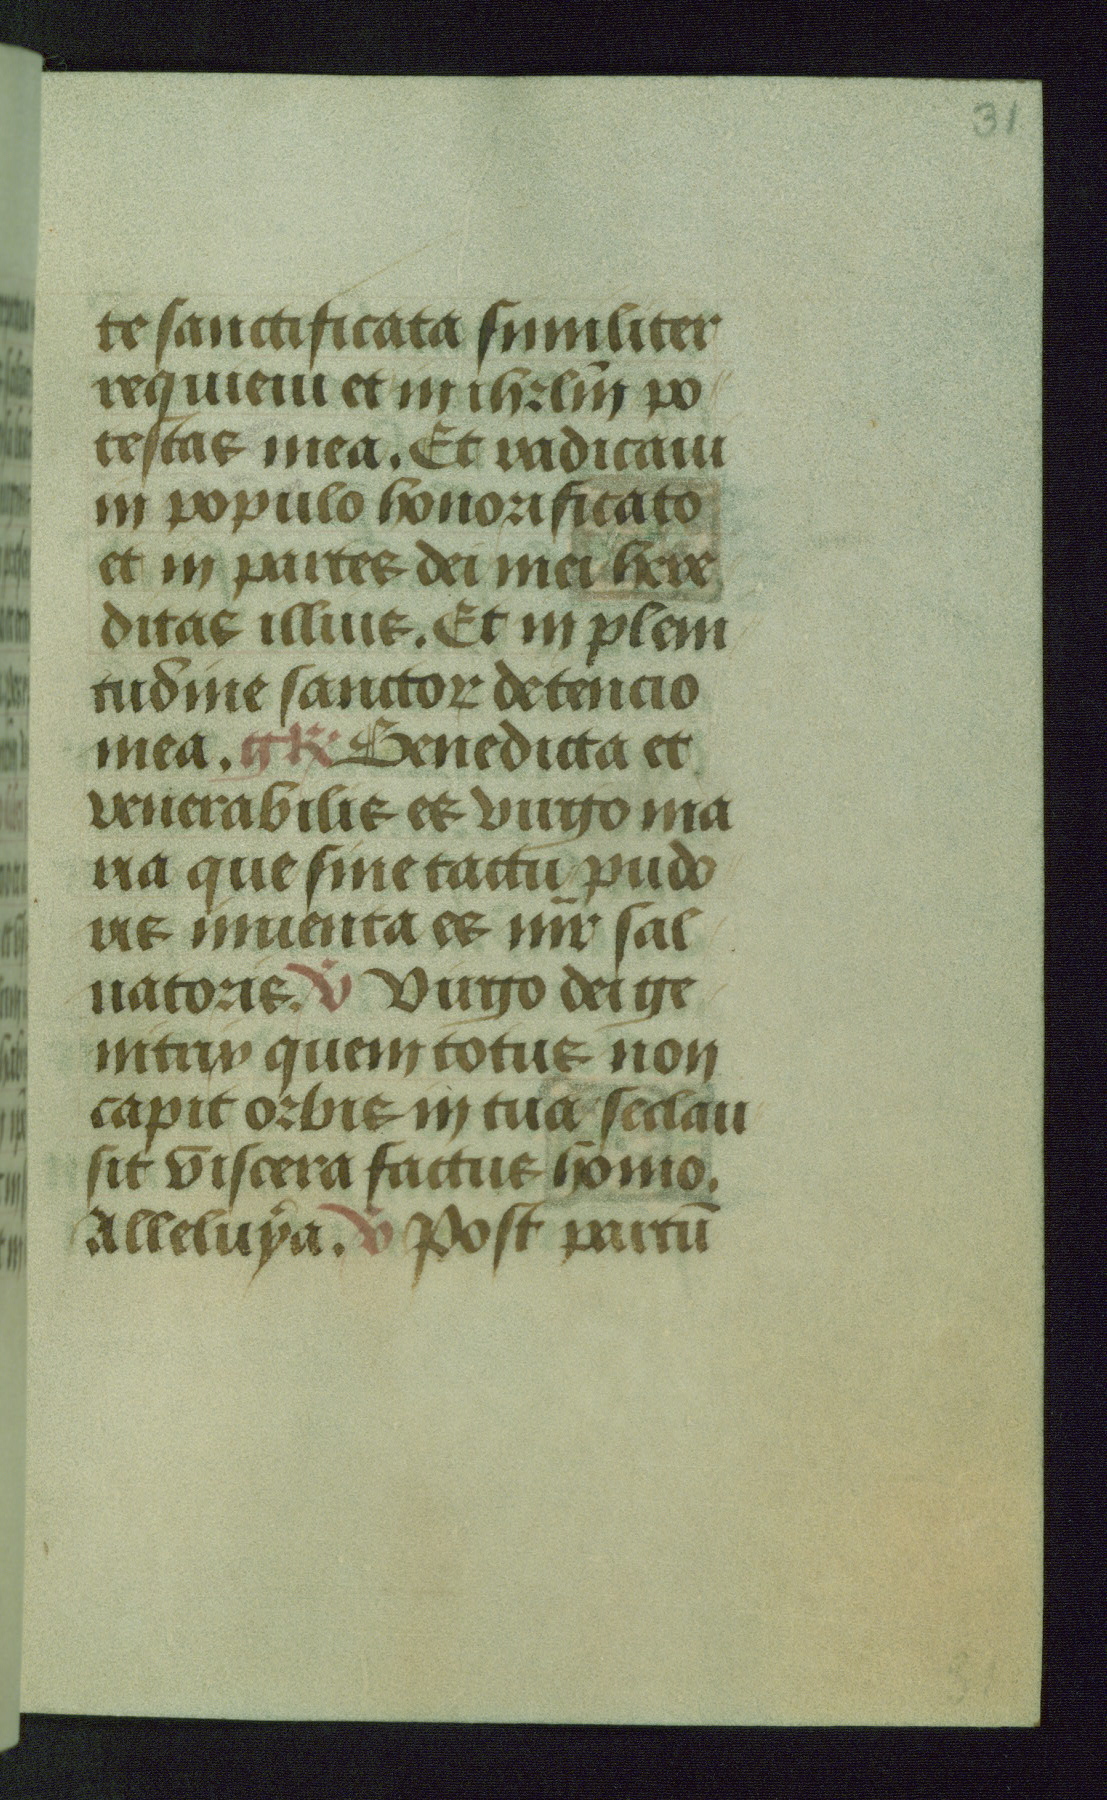 31
te sanctificata similiter
requieui et in ihrlm̄ po
testas mea. Et radicaui
in populo honorificato
et in partes dei mei here
ditas illius. Et in pleni
tudīne sanctor detencio
mea. gR̃ Benedicta et
venerabilis es virgo ma
ria que sine tactu pudo
ris inuenta es mr̄ sal
uatoris. v̄ Virgo dei ge
nitrix quem totus non
capit orbis in tua seclau
sit viscera factus homo.
Alleluya. v̄ Post partū